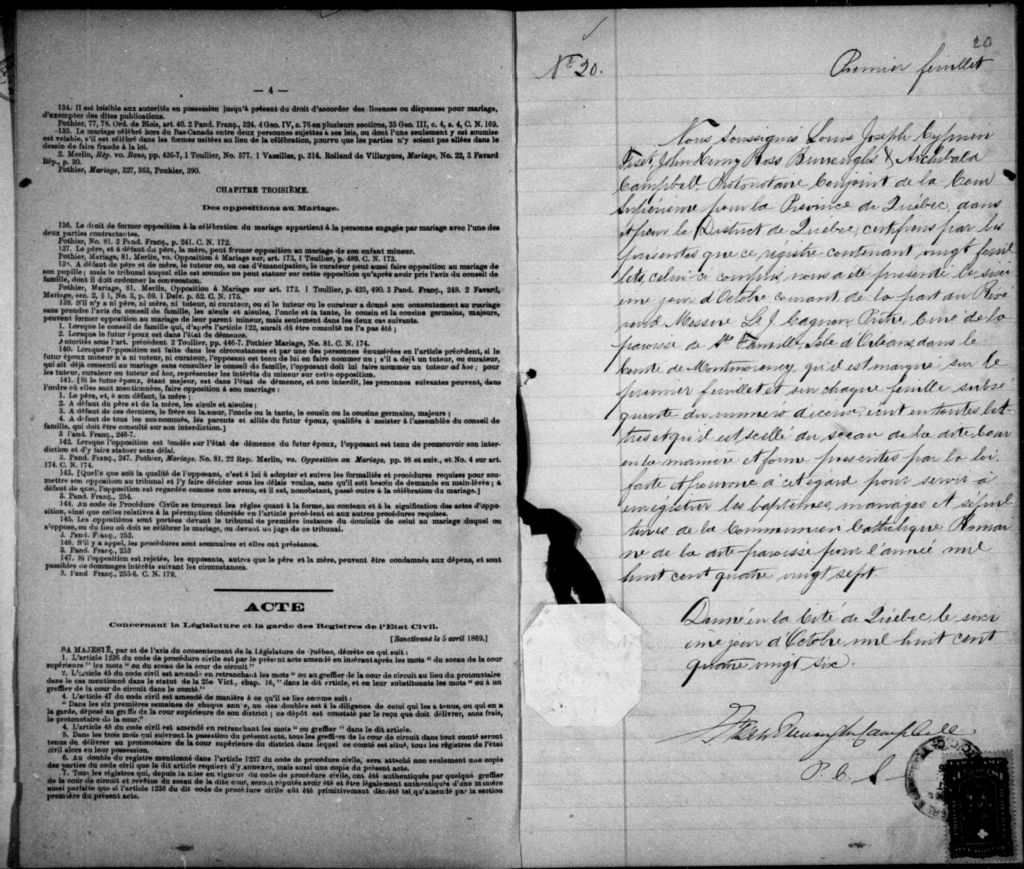 — 4 —
134. Il est loisible aux autorités en possession jusqu'à présent du droit d'accorder des licences ou dispenses pour mariage,
d'exempter des dites publications.
Pothier, 77, 78. Ord. de Blois, art. 40. 2 Pand. Franç., 324. 4 Geo. IV, c. 76 en plusieurs sections, 35 Geo. III, c. 4, s. 4, C. N. 169.
135. Le mariage célébré hors du Bas-Canada entre deux personnes sujettes à ses lois, ou dont l'une seulement y est soumise
est valable, s'il est célébré dans les formes usitées au lieu de la célébration, pourvu que les parties n'y soient pas allées dans le
dessin de faire fraude à la loi.
2. Merlin, Rép. vo. Bans, pp. 436-7, 1 Toullier, No. 577. 1 Vazeilles, p. 314. Rolland de Villargues, Mariage, No. 22, 3 Favard
Rép., p. 30.
Pothier, Mariage, 327, 363, Pouhier, 390.
CHAPITRE TROISIÈME.
Des oppositions au Mariage.
136. Le droit de former opposition à la célébration du mariage appartient à la personne engagée par mariage avec l'une des
deux parties contractantes.
Pothier, No. 81. 3 Pand. Franç., p. 241. C. N. 172.
137. Le père, et à défaut du père, la mère, peut former opposition au mariage de son enfant mineur.
Pothier, Mariage, 81. Merlin, vo. Opposition à Mariage sur, art. 173, 1 Toullier, p. 489. C. N. 173.
138. A défaut de père et de mère, le tuteur ou, au cas d'émancipation, le curateur peut aussi faire opposition au mariage de
son pupille; mais le tribunal auquel elle est soumise ne peut statuer sur cette opposition qu'après avoir pris l'avis du conseil de
famille, dont il doit ordonner la convocation.
Pothier, Mariage, 81. Merlin, Opposition à Mariage sur art. 173. 1 Toullier, p. 425, 490. 3 Pand. Franç., 248. 2 Favard,
Mariage, sec. 2, § 1, No. 3, p. 59. 1 Delv. p. 62. C. N. 175.
139. S'il n'y a ni père, ni mère, ni tuteur, ni curateur, ou si le tuteur ou le curateur a donné son consentement au mariage
sans prendre l'avis du conseil de famille, les aïeuls et aïeules, l'oncle et la tante, le cousin et la cousine germains, majeurs,
peuvent former opposition au mariage de leur parent mineur, mais seulement dans les deux cas suivants.
1. Lorsque le conseil de famille qui, d'après l'article 122, aurait dû être consulté ne l'a pas été;
2. Lorsque le futur époux est dans l'état de démence.
Autorités sous l'art. précédent. 2 Toullier, pp. 446-7. Pothier Mariage, No. 81. C. N. 174.
140. Lorsque l'opposition est faite dans les circonstances et par une des personnes énumérées en l'article précédent, si le
futur époux mineur n'a ni tuteur, ni curateur, l'opposant est tenu de lui en faire nommer un; s'il a déjà un tuteur, ou curateur,
qui ait déjà consenti au mariage sans consulter le conseil de famille, l'opposant doit lui faire nommer un tuteur ad hoc; pour
les tuteur, curateur ou tuteur ad hoc, représenter les intérêts du mineur sur cette opposition.
141. [Si le futur époux, étant majeur, est dans l'état de démence, et non interdit, les personnes suivantes peuvent, dans
l'ordre où elles sont mentionnées, faire opposition à son mariage:
1. Le père, et, à son défaut, la mère;
2. A défaut du père et de la mère, les aïeuls et aïeules;
3. A défaut de ces derniers, le frère ou la sœur, l'oncle ou la tante, le cousin ou la cousine germains, majeurs;
4. A défaut de tous les sus-nommés, les parents et alliés du futur époux, qualifiés à assister à l'assemblée du conseil de
famille, qui doit être consulté sur son interdiction.]
3 Pand. Franç., 246-7.
142. Lorsque l'opposition est fondée sur l'état de démence du futur époux, l'opposant est tenu de promouvoir son inter-
diction et d'y faire statuer sans délai.
3. Pand. Franç., 247. Pothier, Mariage. No. 81. 22 Rep. Merlin, vo. Opposition au Mariage, pp. 98 et suiv., et No. 4 sur art.
174. C. N. 174.
143. [Quelle que soit la qualité de l'opposant, c'est à lui à adopter et suivre les formalités et procédures requises pour sou-
mettre son opposition au tribunal et l'y faire décider sous les délais voulus, sans qu'il soit besoin de demande en main-levée; à
défaut de quoi, l'opposition est regardée comme non avenue, et il est, nonobstant, passé outre à la célébration du mariage.]
3. Pand. Franç., 254.
144. Au code de Procédure Civile se trouvent les règles quant à la forme, au contenu et à la signification des actes d'oppo-
sition, ainsi que celles relatives à la péremption décrétée en l'article précédent et aux autres procédures requises.
145. Les oppositions sont portées devant le tribunal de première instance du domicile de celui au mariage duquel on
s'oppose, ou du lieu où doit se célébrer le mariage, ou devant un juge de ce tribunal.
3. Pand. Franç., 253.
146. S'il y a appel, les procédures sont sommaires et elles ont préséance.
3. Pand. Franç., 253
147. Si l'opposition est rejetée, les opposants, autres que le père et la mère, peuvent être condamnés aux dépens, et sont
passibles de dommages intérêts suivant les circonstances.
3. Pand Franç., 255-6. C. N. 179.
ACTE
Concernant la Législature et la garde des Registres de l'Etat Civil.
[Sanctionné le 5 avril 1869.]
SA MAJESTÉ, par et de l'avis du consentement de la Législature de Québec, décrète ce qui suit:
1. L'article 1236 du code de procédure civile est par le présent acte amendé en insérant après les mots "du sceau de la cour
supérieure" les mots "ou du sceau de la cour de circuit."
2. L'article 45 du code civil est amendé en retranchant les mots "ou au greffier de la cour de circuit au lieu du protonotaire
dans le cas mentionné dans le statut de la 25e Vict., chap. 16," dans le dit article, et en leur substituants les mots "ou à un
greffier de la cour de circuit dans le comté."
4. L'article 47 du code civil est amendé de manière à ce qu'il se lise comme suit:
"Dans les six premières semaines de chaque année, un des doubles est à la diligence de celui qui les a tenus, ou qui en a
la garde, déposé au greffe de la cour supérieure de son district; ce dépôt est constaté par le reçu que doit délivrer, sans frais,
le protonotaire de la cour."
4. L'article 48 du code civil est amendé en retranchant les mots "ou greffier" dans le dit article.
5. Dans les trois mois qui suivront la passation du présent acte, tous les greffiers de la cour de circuit dans tout comté seront
tenus de délivrer au protonotaire de la cour supérieure du district dans lequel ce comté est situé, tous les régistres de l'état
civil alors en leur possession.
6. Au double du régistre mentionné dans l'article 1237 du code de procédure civile, sera attaché non seulement une copie
des parties du code civil que le dit article requiert d'y annexer, mais aussi une copie du présent acte.
7. Tous les régistres qui, depuis la mise en vigueur du code de procédure civile, ont été authentiqués par quelque greffier
de la cour de circuit et revêtus du sceau de la dite cour, seront réputés avoir été et être légalement authentiqués d'une manière
aussi parfaite que si l'article 1236 du dit code de procédure civile eût été primitivement décrété tel qu'amendé par la section
première du présent acte.
20
No 20.
Premier feuillet
Nous Soussignés Louis Joseph Cyprien
Fiset, John Henry Ross Burroughs & Archibald
Campbell Protonotaire Conjoint de la Cour
Supérieure pour la Province de Québec, dans
et pour le District de Québec, certifions par les
présentes que ce régistre contenant vingt feuil
lets, celui-ci compris, nous a été présenté le sixi
ème jour d'Octobre courant de la part du Révé
rend Messire L. J. Gagnon Prêtre Curé de la
paroisse de Ste Famille, Isle d'Orléans, dans le
comté de Montmorency, qu'il est marqué sur le
premier feuillet et sur chaque feuille subsé
quente du numéro d'iceux, écrit en toutes let
tres et qu'il est scellé du sceau de la dite Cour
en la manière et forme prescrites par la loi
faite et pourvue à cet égard pour servir à
enregistrer les baptêmes, mariages et sépul
tures de la Communion Catholique Romai
ne de la dite paroisse pour l'année mil
huit cent quatre vingt sept.
Donné en la Cité de Québec, le sixi
ème jour d'Octobre mil huit cent
quatre vingt six.
Fiset Burroughs Campbell
P. C. S.